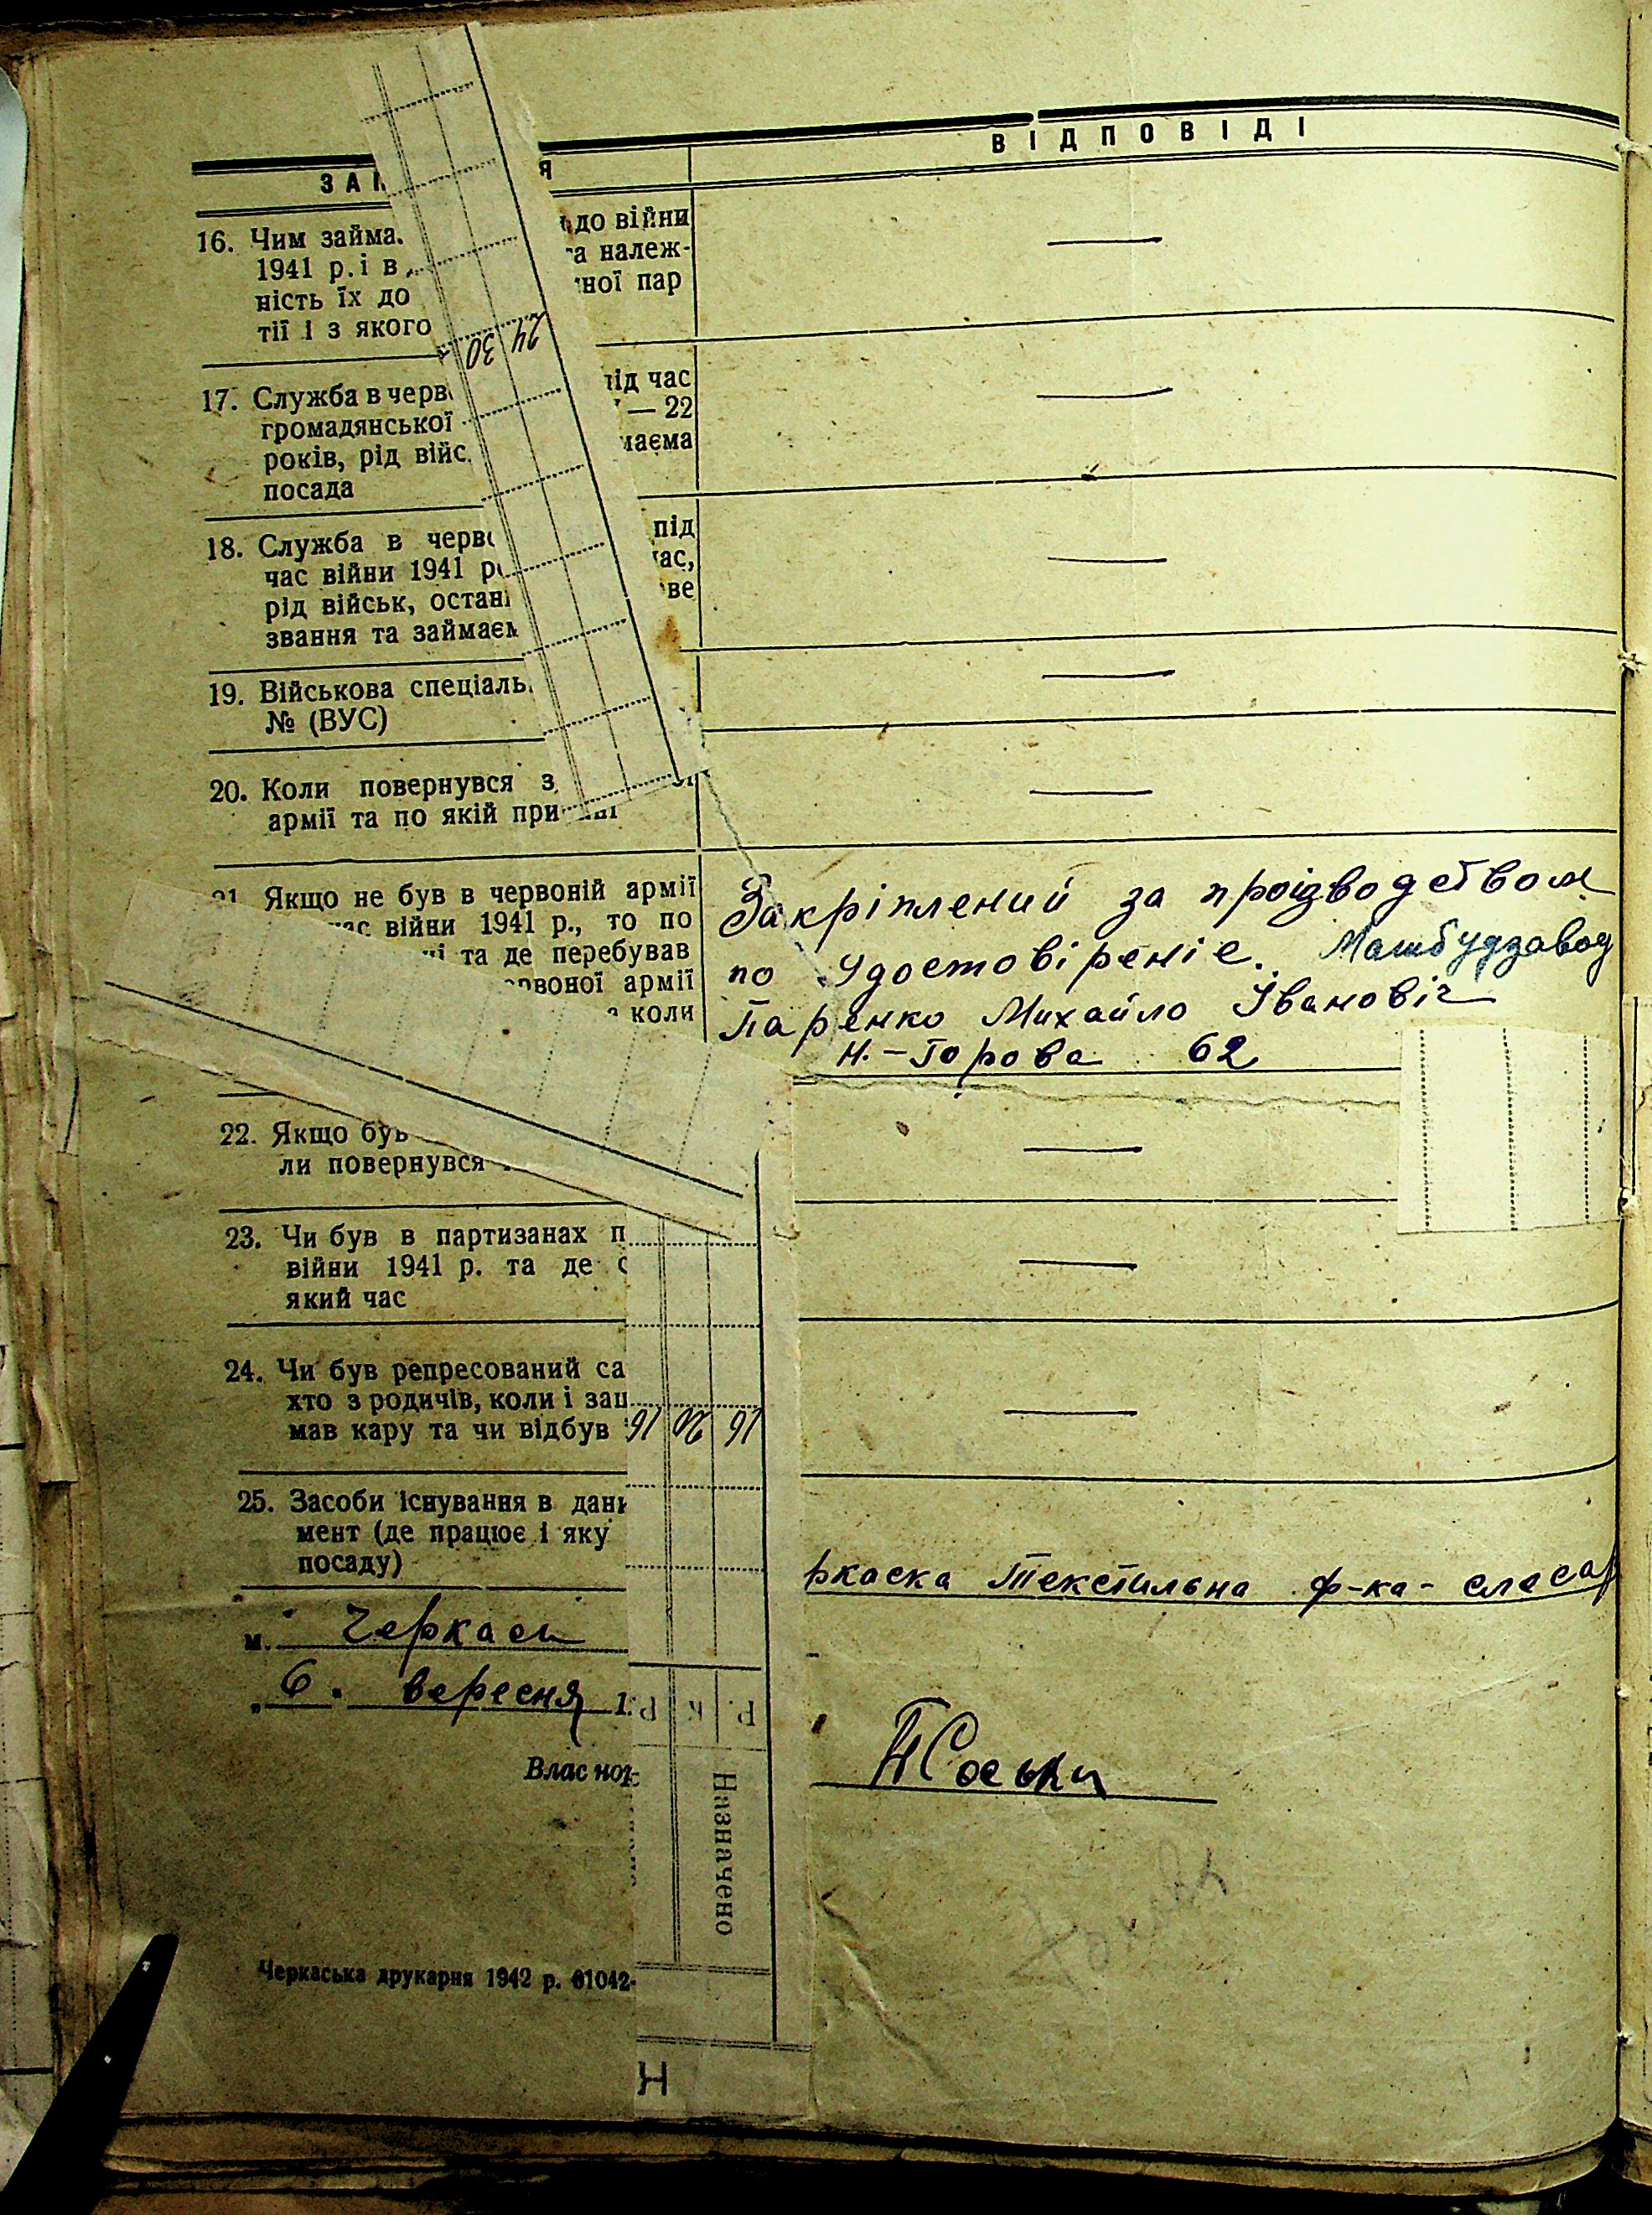 ВІДПОВІДІ
16. Чим займа
до війни
1941 р. і в
та належ-
ність їх до
ної пар
тії і з якого
30 24
17. Служба в черв
під час
громадянської
— 22
років, рід війс
маєма
посада
18. Служба в черво
під
час війни 1941 ро
час,
рід військ, останн
ве
звання та займаєм
19. Військова спеціаль
№ (ВУС)
20. Коли повернувся з
армії та по якій при
21. Якщо не був в червоній армії
час війни 1941 р., то по
та де перебував
рвоної армії
коли
Закріплений за проізводством
по Удостовіреніе. Машбудзавод
Паренко Михайло Івановіч
Н.-Горова 62
22. Якщо був
ли повернувся
23. Чи був в партизанах п
війни 1941 р. та де с
який час
24. Чи був репресований са
хто з родичів, коли і защ
мав кару та чи відбув
16 20 16
25. Засоби існування в дан
мент (де працює і яку
посаду)
ркаска Текстильна ф-ка - слесар
м. Черкаси
„6." вересня 1
Р. К Р.
Власнор
Назначено
Черкаська друкарня 1942 р. 61042-
Н